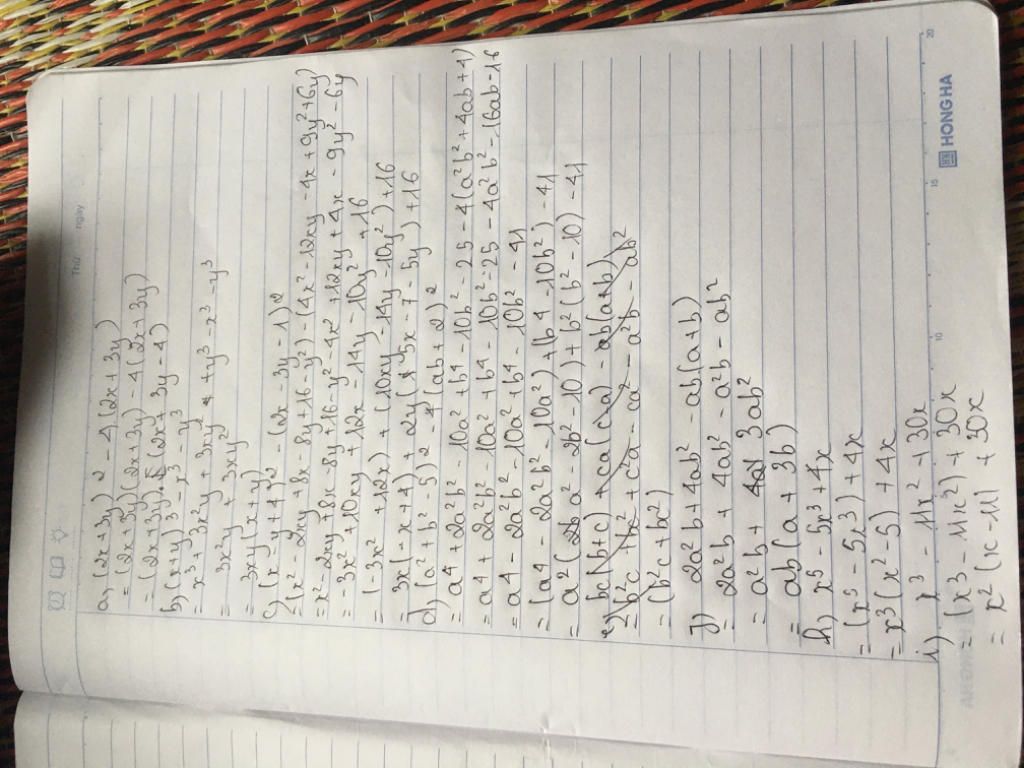 Thứ ngày
a) (2x + 3y)² - 4(2x + 3y)
= (2x + 3y)(2x + 3y) - 4(2x + 3y)
= (2x + 3y)(2x + 3y - 4)
b) (x + y)³ - x³ - y³
= x³ + 3x²y + 3xy² + y³ - x³ - y³
= 3x²y + 3xy²
= 3xy(x + y)
c) (x - y + 4)² - (2x - 3y - 1)²
= (x² - 2xy + 8x - 8y + 16 - y²) - (4x² - 12xy - 4x + 9y² + 6y)
= x² - 2xy + 8x - 8y + 16 - y² - 4x² + 12xy + 4x - 9y² - 6y
= -3x² + 10xy + 12x - 14y - 10y² + 16
= (-3x² + 12x) + (10xy - 14y - 10y²) + 16
= 3x(-x + 4) + 2y(5x - 7 - 5y) + 16
d) (a² + b² - 5)² - 4(ab + 2)²
= a⁴ + 2a²b² - 10a² + b⁴ - 10b² - 25 - 4(a²b² + 4ab + 4)
= a⁴ + 2a²b² - 10a² + b⁴ - 10b² - 25 - 4a²b² - 16ab - 16
= a⁴ - 2a²b² - 10a² + b⁴ - 10b² - 41
= (a⁴ - 2a²b² - 10a²) + (b⁴ - 10b²) - 41
= a²(a² - 2b² - 10) + b²(b² - 10) - 41
e) bc(b + c) + ca(c - a) - ab(a + b)
= b²c + bc² + c²a - ca² - a²b - ab²
= (b²c + bc²)
g) 2a²b + 4ab² - ab(a + b)
= 2a²b + 4ab² - a²b - ab²
= a²b + 3ab²
= ab(a + 3b)
h) x⁵ - 5x³ + 4x
= (x⁵ - 5x³) + 4x
= x³(x² - 5) + 4x
i) x³ - 11x² + 30x
= (x³ - 11x²) + 30x
= x²(x - 11) + 30x
10 15 20
HONGHA